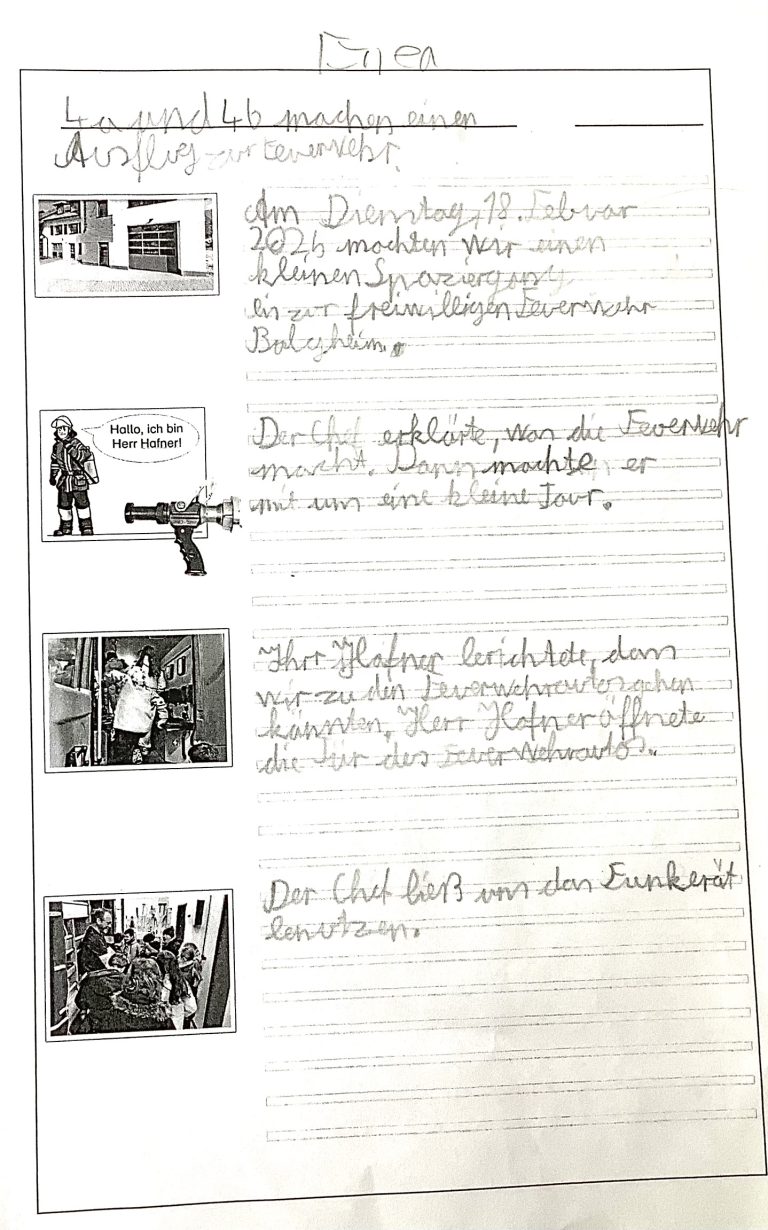 Enea
4a und 4b machen einen
Ausflug zur Feuerwehr.
Am Dienstag, 18. Februar
2026 machten wir einen
kleinen Spaziergang
bis zur freiwilligen Feuerwehr
Balgheim.
Hallo, ich bin
Herr Hafner!
Der Chef erklärte, was die Feuerwehr
macht. Dann machte er
mit uns eine kleine Tour.
Herr Hafner berichtete, dass
wir zu den Feuerwehrautos gehen
könnten. Herr Hafner öffnete
die Tür des Feuerwehrautos.
Der Chef ließ uns das Funkerät
benutzen.